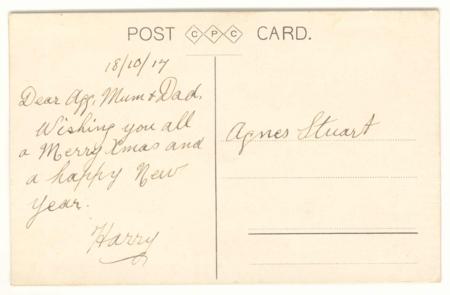 POST CPC CARD.
18/10/17
Dear Agg, Mum & Dad,
Wishing you all
a Merry Xmas and
a happy New
Year.
Harry
Agnes Stuart